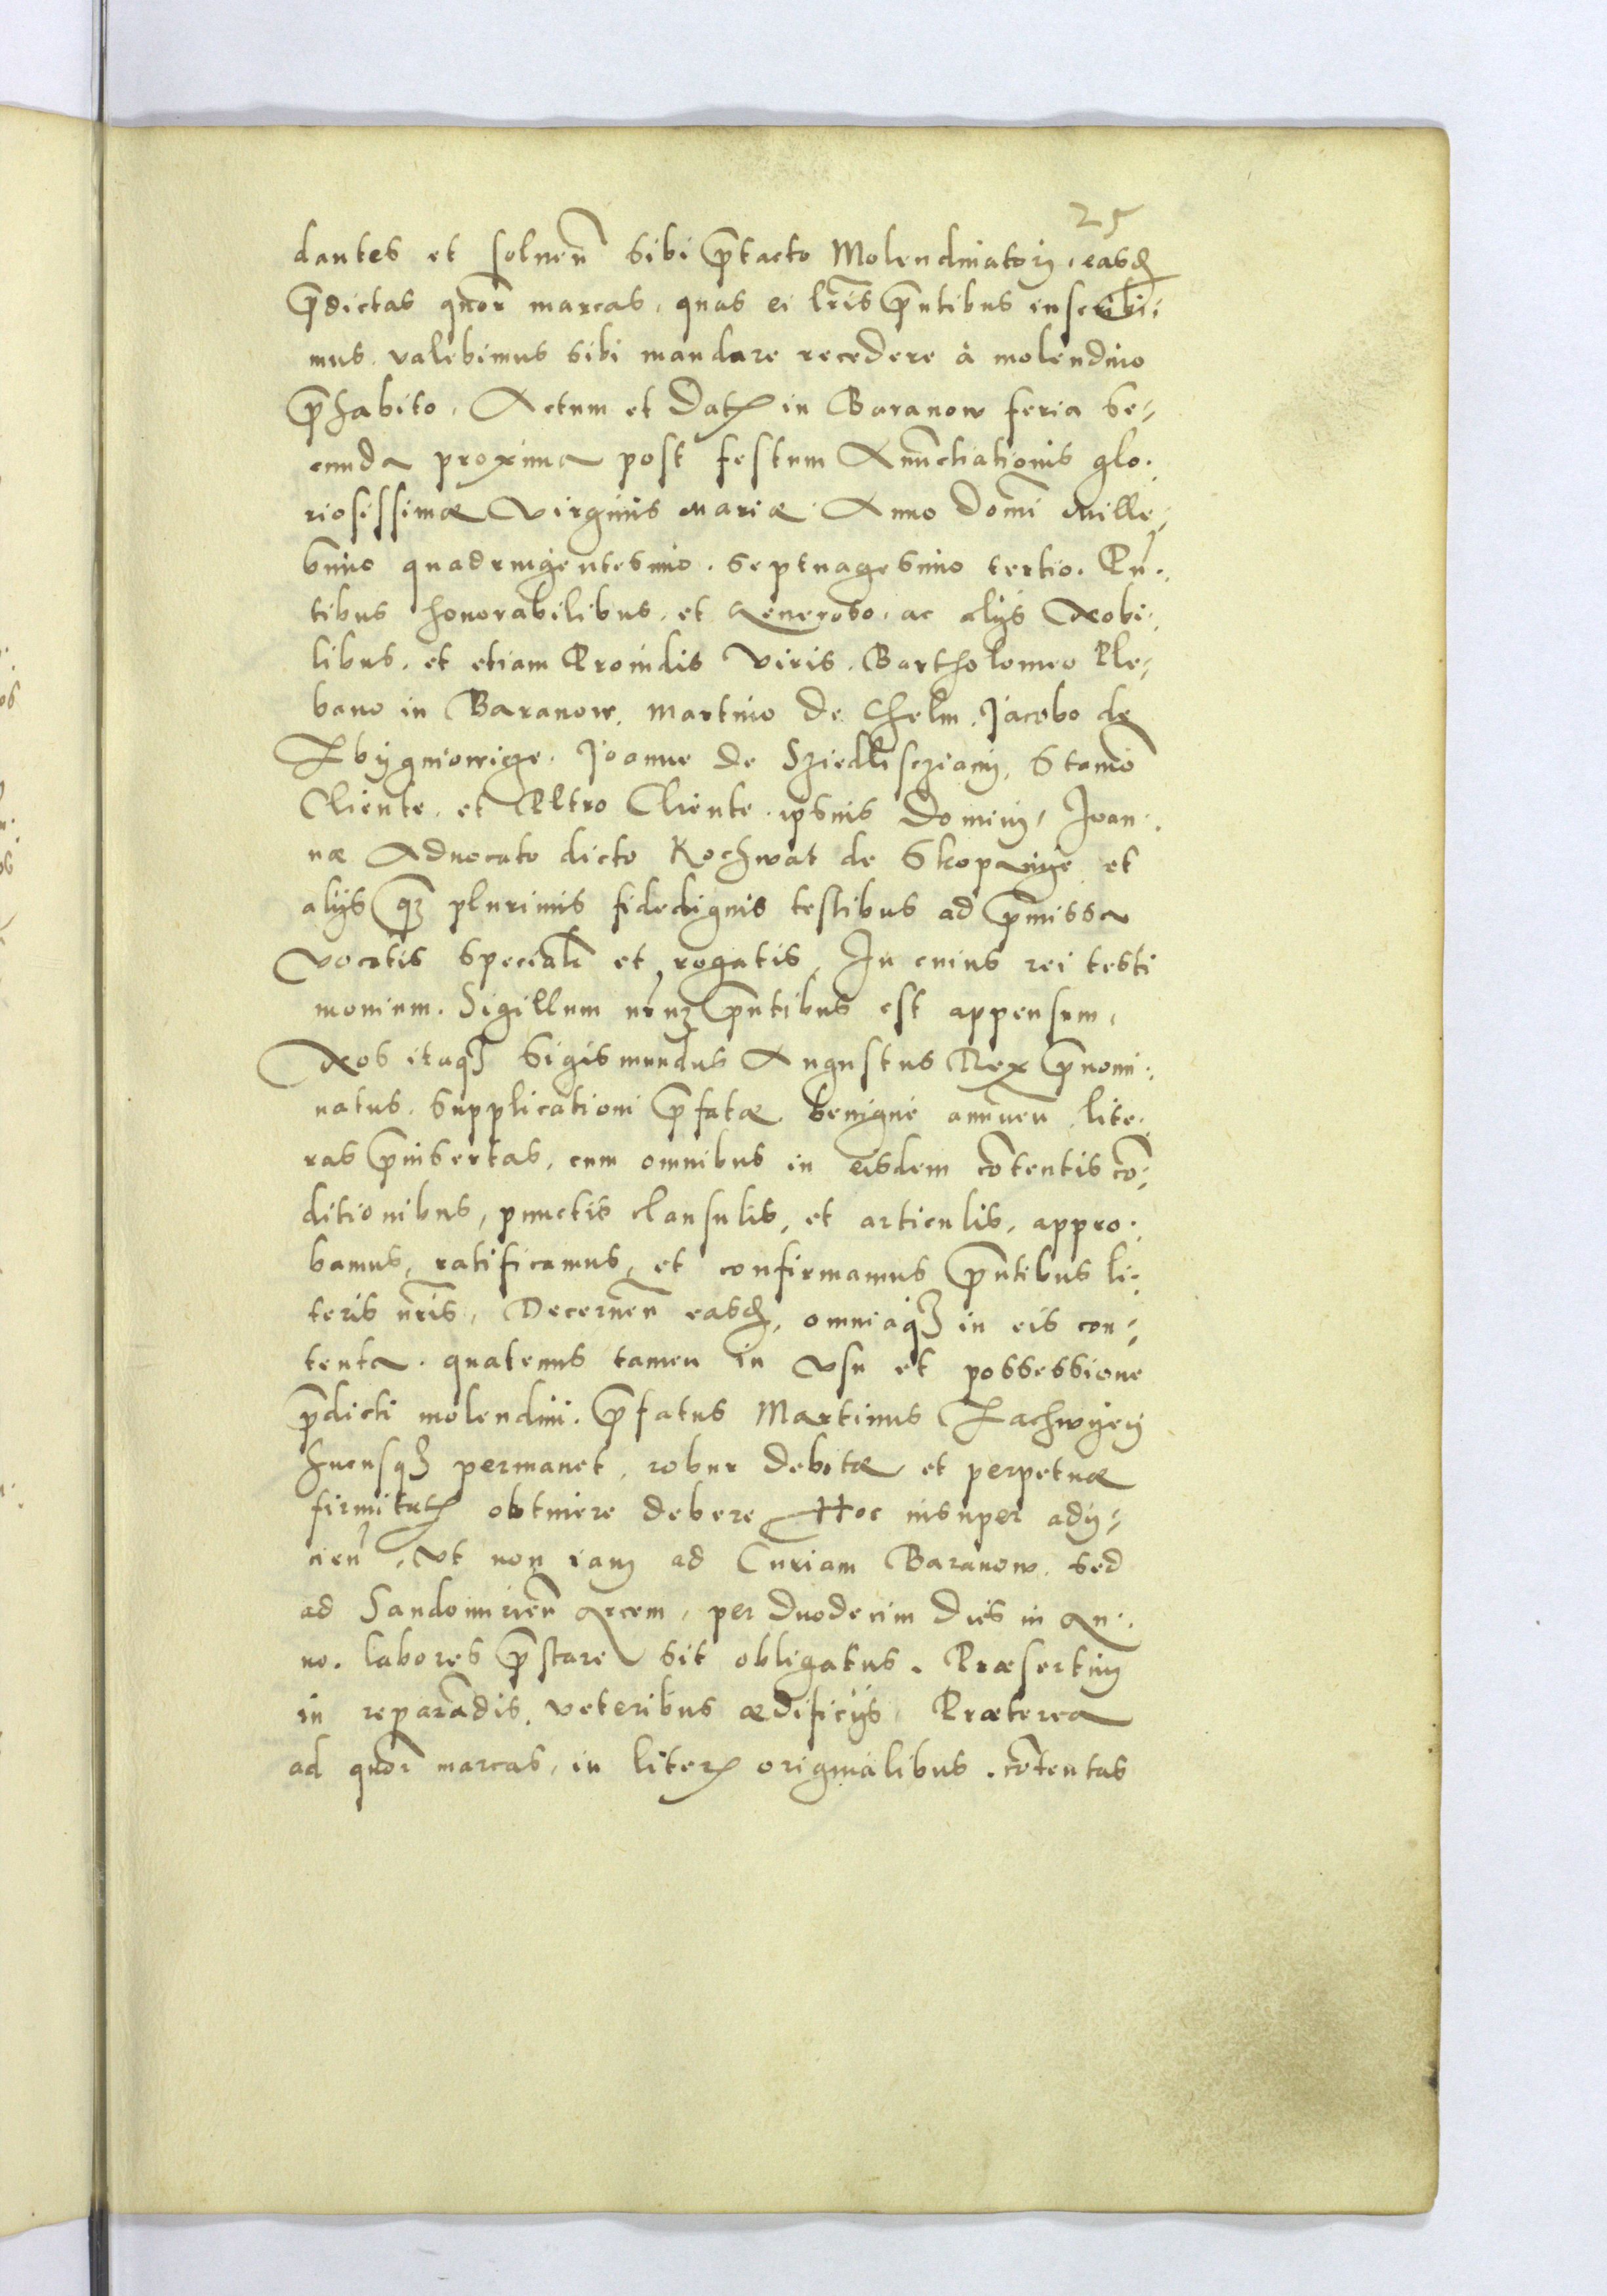 25
dantes et soluen̄ sibi p̄tacto Molendinatorj, easd
p̄dictas quor̄ marcas, quas ei lr̄is p̄ntibus inscribi-
mus. valebimus sibi mandare recedere à molendino
p̄habito. Actum et Dat in Baranow feria se-
cunda proxima post festum Anūctiationis glo-
riosissimæ Virginis Mariæ. Anno Domī Mille-
simo quadringentesimo. septuagesimo tertio. Pn̄-
tibus honorabilibus, et Generoso, ac alijs Nobi-
libus, et etiam Prouidis Viris. Bartholomeo Ple-
bano in Baranow, Martino de Chelm. Jacobo de
Zbÿgniowicze. Joanne de Sziedlisczianÿ, Stanīo
Cliente, et Altro Cliente ipsius Dominj, Joan-
næ Aduocato dicto Kochwat de Skopanÿe et
alijs qz plurimis fidedignis testibus ad p̄missa
vocatis specialr̄ et rogatis, In cuius rei testi
monium. Sigillum nr̄uz p̄ntibus est appensum,
Nos itaqz Sigismundus Augustus Rex p̄nomi-
natus. supplicationi p̄fatæ benigne annuen̄ lite-
ras p̄insertas, cum omnibus in eisdem cōtentis cō-
ditionibus, punctis clausulis, et articulis, appro-
bamus, ratificamus, et confirmamus p̄ntibus li-
teris nr̄is, Decernen̄ easd, omniaqz in eis con-
tenta. quatenus tamen in vsu et possessione
p̄dicti molendini. p̄fatus Martinus Lachwÿeÿ
hucusqz permanet, robur debitæ et perpetuæ
firmitat obtinere debere Hoc insuper adij-
cien̄, Vt non iam ad Curiam Baranow. sed
ad Sandomirien̄ Arcem, per duodecim dies in An-
no. labores p̄stare sit obligatus. Præsertim
in reparādis, veteribus ædificijs. Præterea
ad quor̄ marcas, in liter originalibus. cōtentas